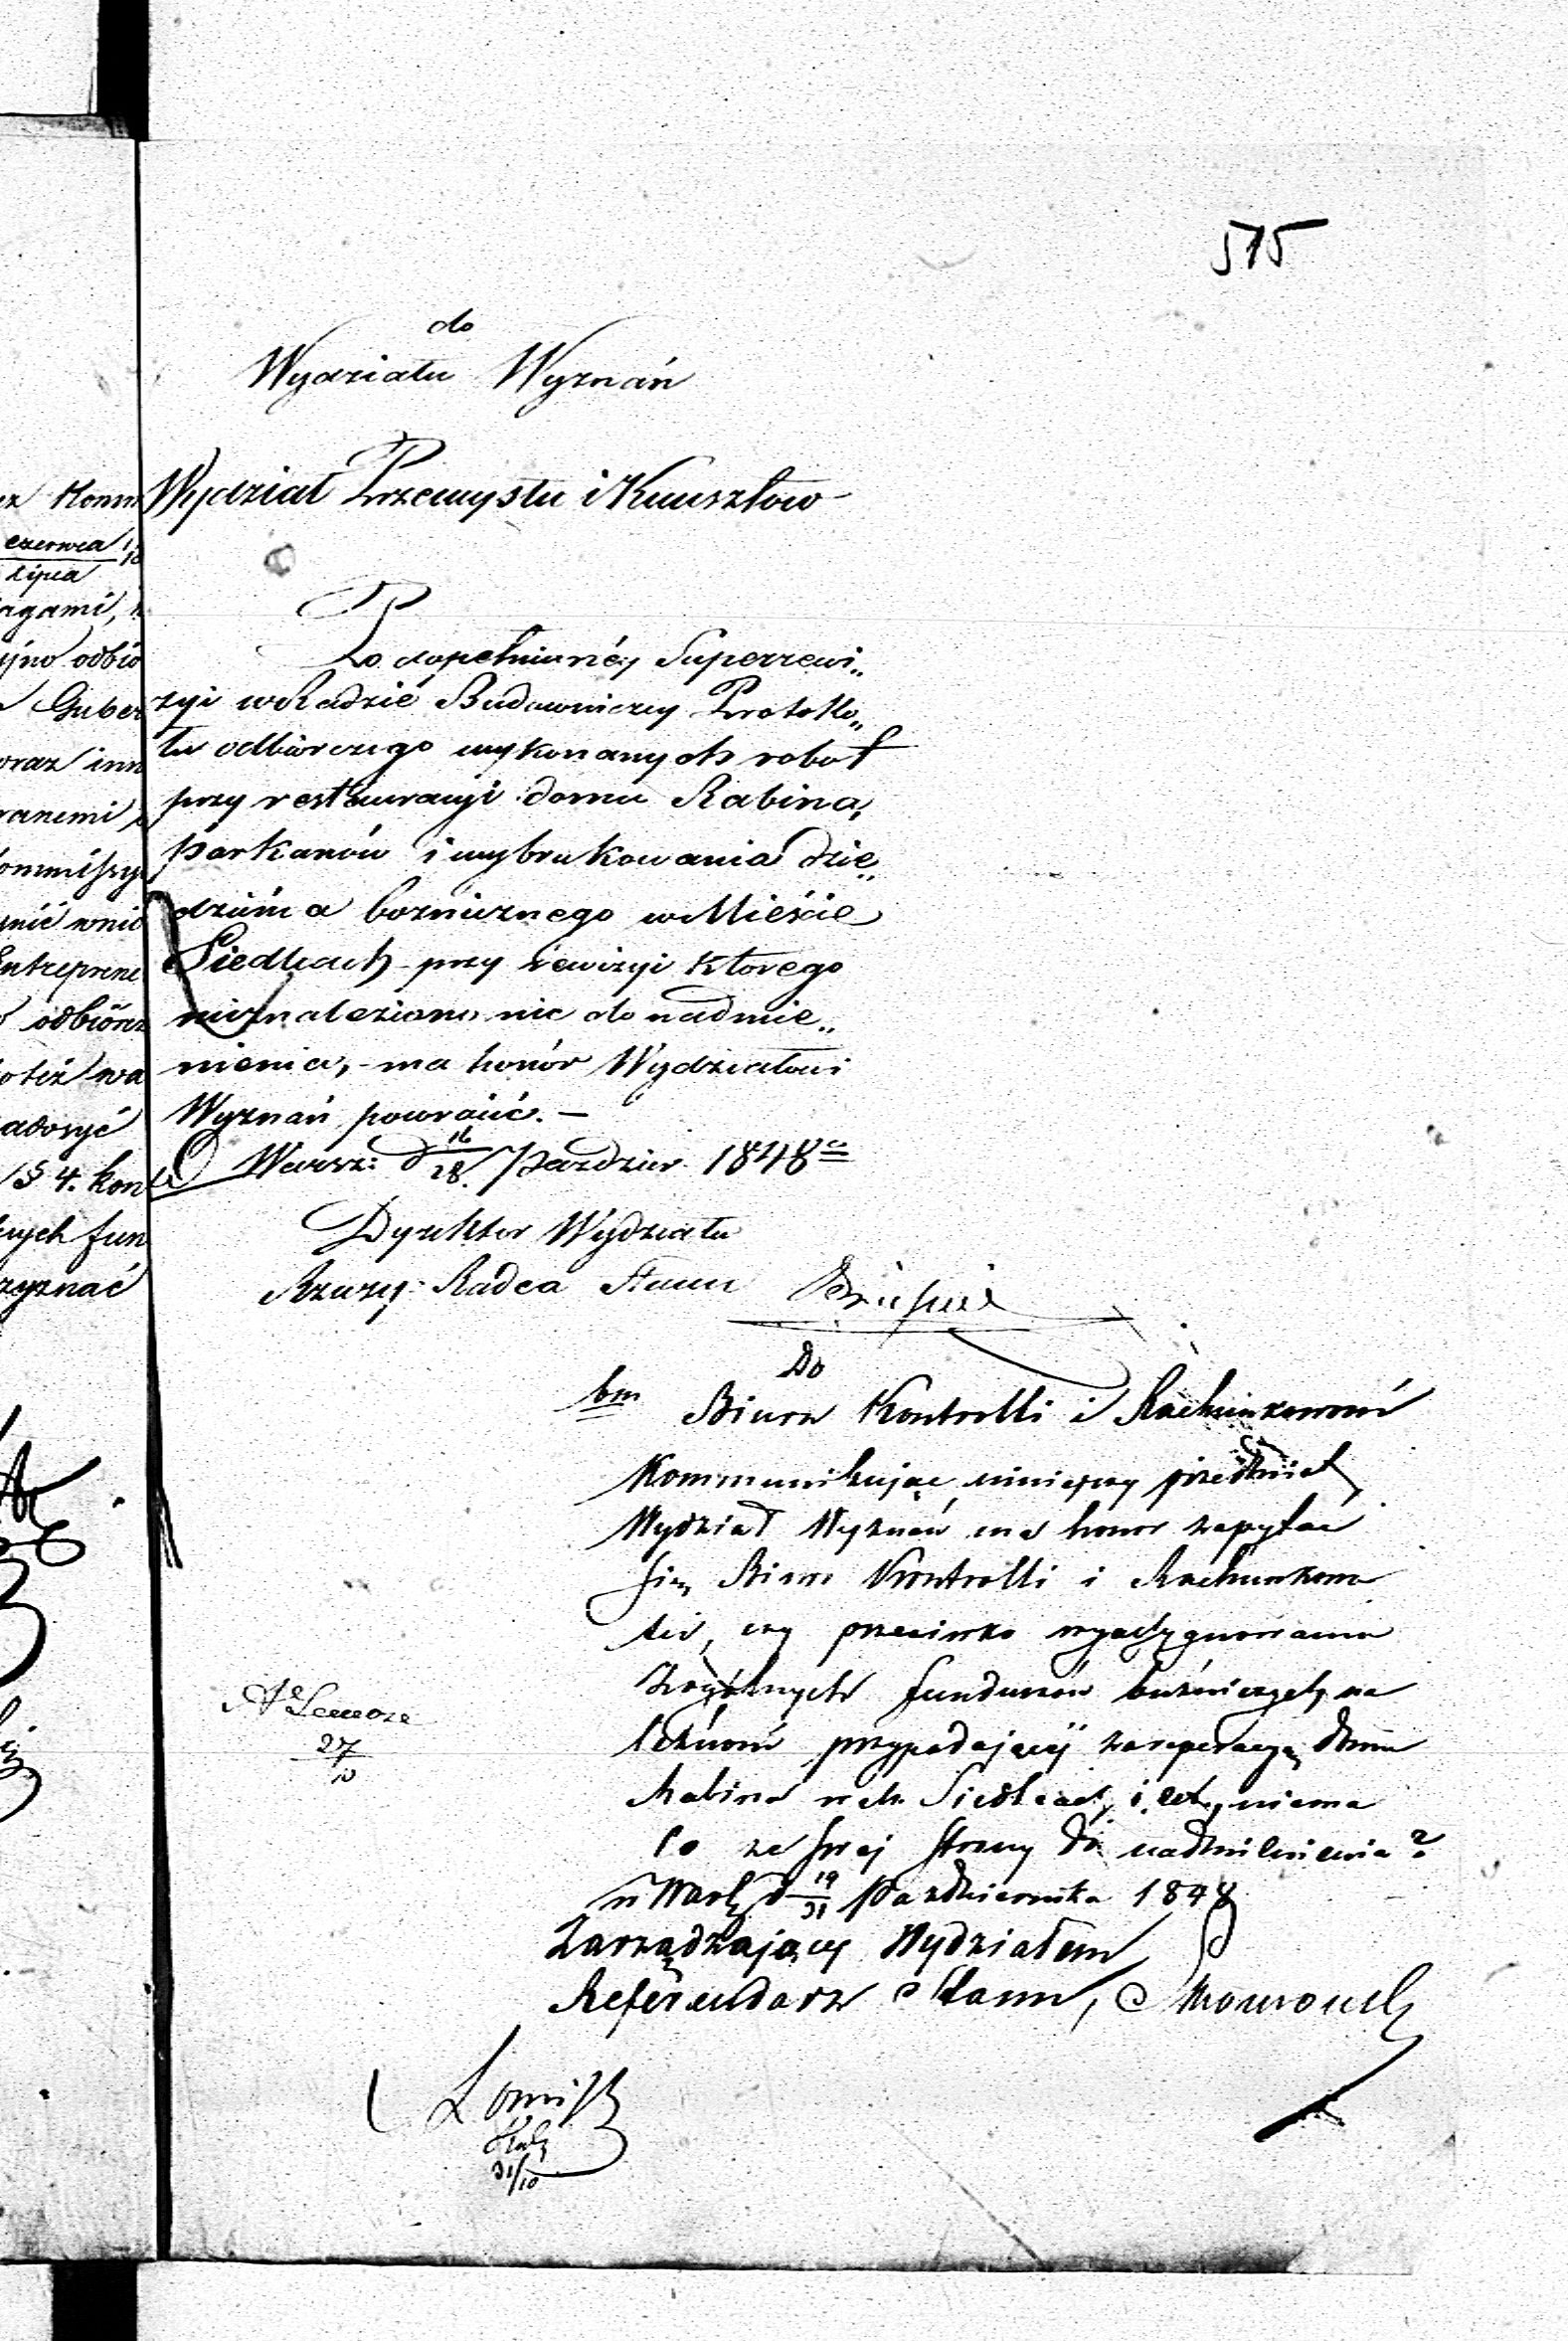 515
do
Wydziału Wyznań
Wydział Przemysłu i Kunsztów
Po dopełnionéj Superrewi„
zyi w Radzie Budowniczey Protokó„
łu odbiorczego wykonanych robot
przy restauracyi domu Rabina,
parkanów i wybrukowania dzie„
dzińca bożnicznego w Mieście
Siedlcach przy rewizyi którego
nieznaleziono nic do nadmie„
nienia, - ma honór Wydziałowi
Wyznań powrócić. —
Warsz: d 16/28. Paździer. 1848
Dyrektor Wydziału
Rzeczy: Radca Stanu
Do
bm Biura Kontrolli i Rachunkowości
Kommunikując niniejszy przedmiot
Wydział Wyznań ma honor zapytać
się Biura Kontrolli i Rachunkowo
ści, czy przeciwko wyassygnowaniu
funduszów bożniczych na
przypadającej za reperacyą domu
Rabina w m. Siedlcach i et. niema
co ze swej strony do nadmienienia?
w Warsz d 19/31 Października 1848
Zarządzający Wydziałem
Referendarz Stanu,
27/10
31/10
ez Komm
czerwca
Lipca
agami,
yjno odbio
Guber
oraz inn
ranemi
ommissyi
wnio
Entreprene
odbiorcz
adosyć
§ 4. kon
nych fun
zyznać